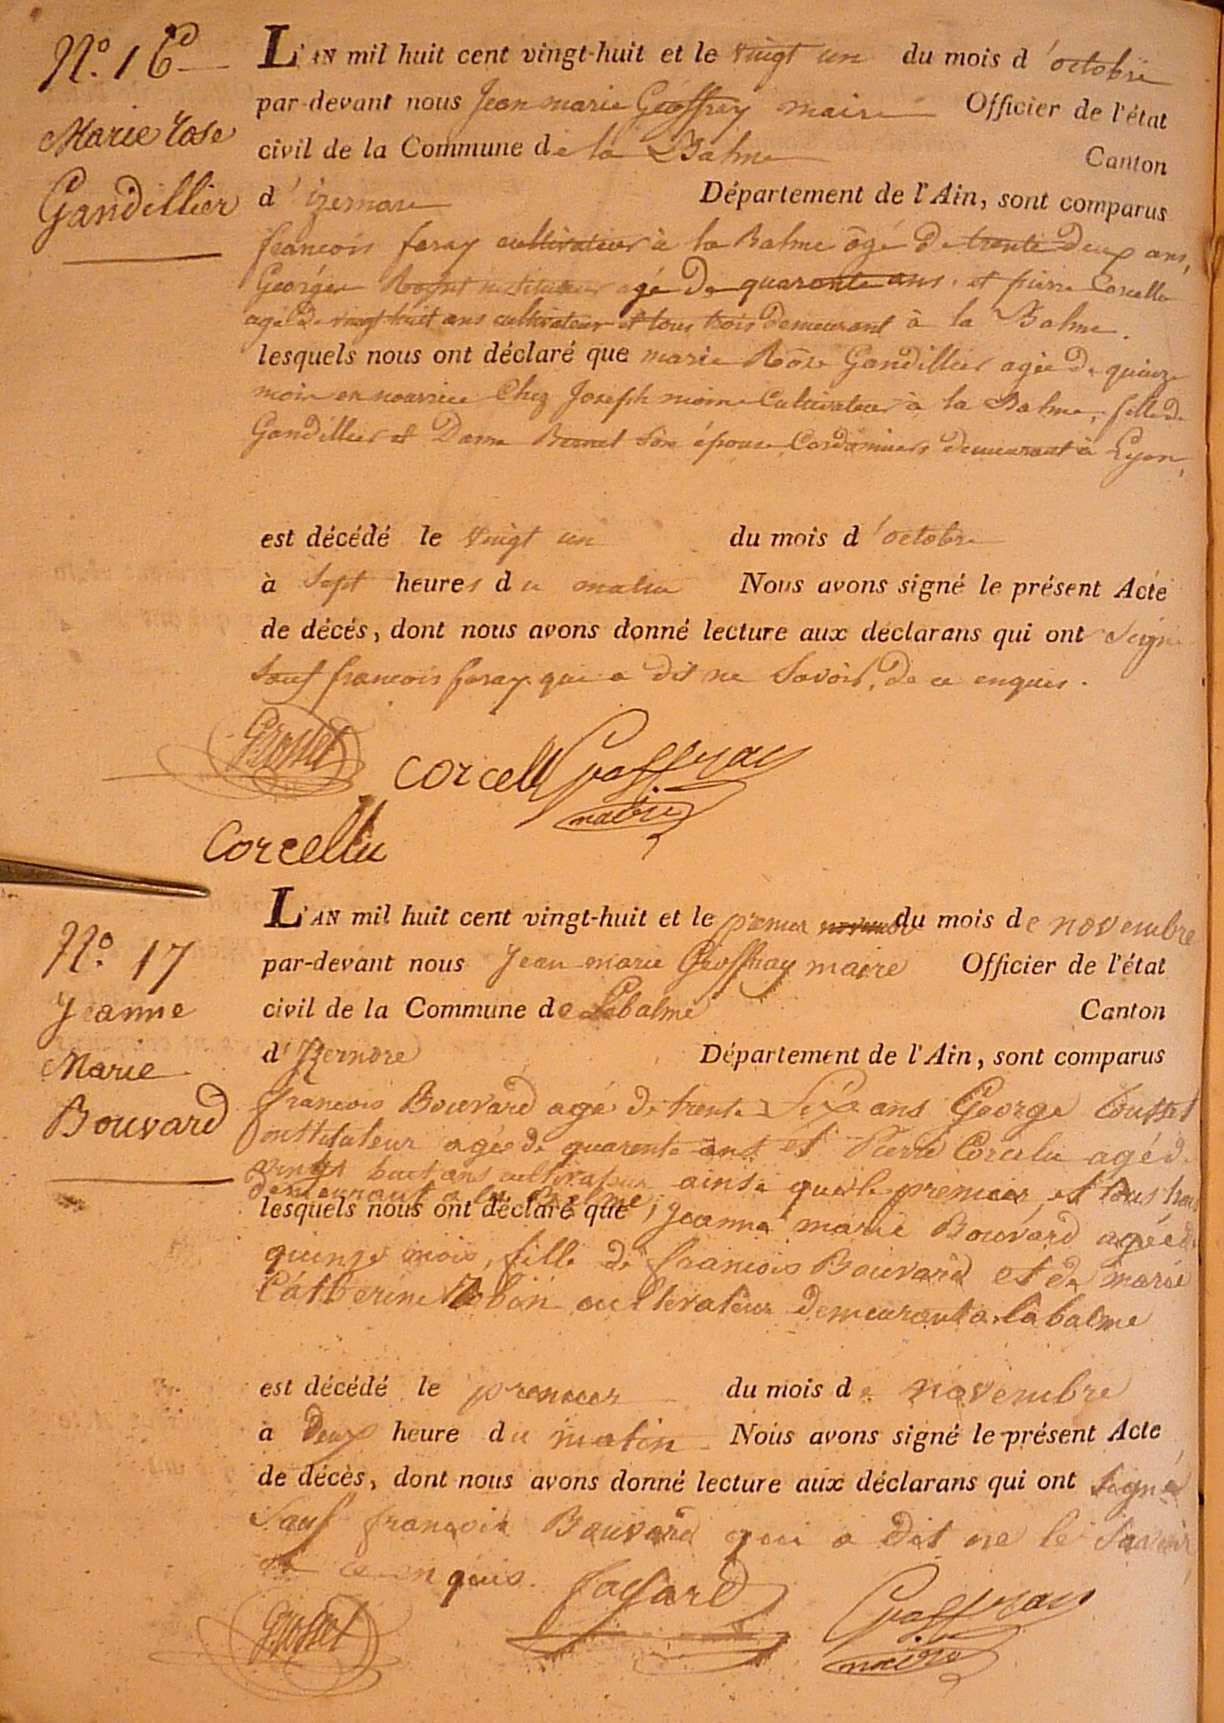 N.º 16
Marie rose
Gandillier
L'AN mil huit cent vingt-huit et le vingt un du mois d'octobre
par-devant nous Jean marie Geoffray maire Officier de l'état
civil de la Commune de la Balme Canton
d'izernore Département de l'Ain, sont comparus
francois feray cultivateur à la Balme âgé de trente deux ans,
Georges instituteur agé De quarante ans, et pierre Corcellu
agé De vingt huit ans cultivateur et tous trois demeurant à la Balme.
lesquels nous ont déclaré que marie Rose Gandillier agée De quinze
mois en nourrice Chez Joseph moine Cultivateur à la Balme, fille de
Gandillier et Dame son épouse Cordonniers demeurant à Lyon,
est décédé le vingt un du mois d'octobre
à Sept heures du matin Nous avons signé le présent Acte
de décés, dont nous avons donné lecture aux déclarans qui ont Signé
Sauf francois feray qui a dit ne Savoir, de ce enquis.
Corcell Geoffray
maire
Corcellu
N.º 17
Jeanne
Marie
Bouvard
L'AN mil huit cent vingt-huit et le premier du mois de novembre
par-devant nous Jean marie Geoffray maire Officier de l'état
civil de la Commune de Labalme Canton
d'Izernore Département de l'Ain, sont comparus
francois Bouvard agé de trente Six ans George
instituteur agée de quarente ans et Pierre Corcelu agéd
vingt huit ans cultivateur ainsi que le premier et tous trois
demeurant a la Balme,
lesquels nous ont déclaré que, jeanne marie Bouvard agée de
quinze mois, fille de francois Bouvard et de marie
Catherine cultivateur demeurant a labalme
est décédé le premier du mois de novembre
à deux heure du matin Nous avons signé le présent Acte
de décès, dont nous avons donné lecture aux déclarans qui ont Signé
Sauf françois Bouvard qui a dit ne le Savoir,
de ce enquis.
Geoffray
maire